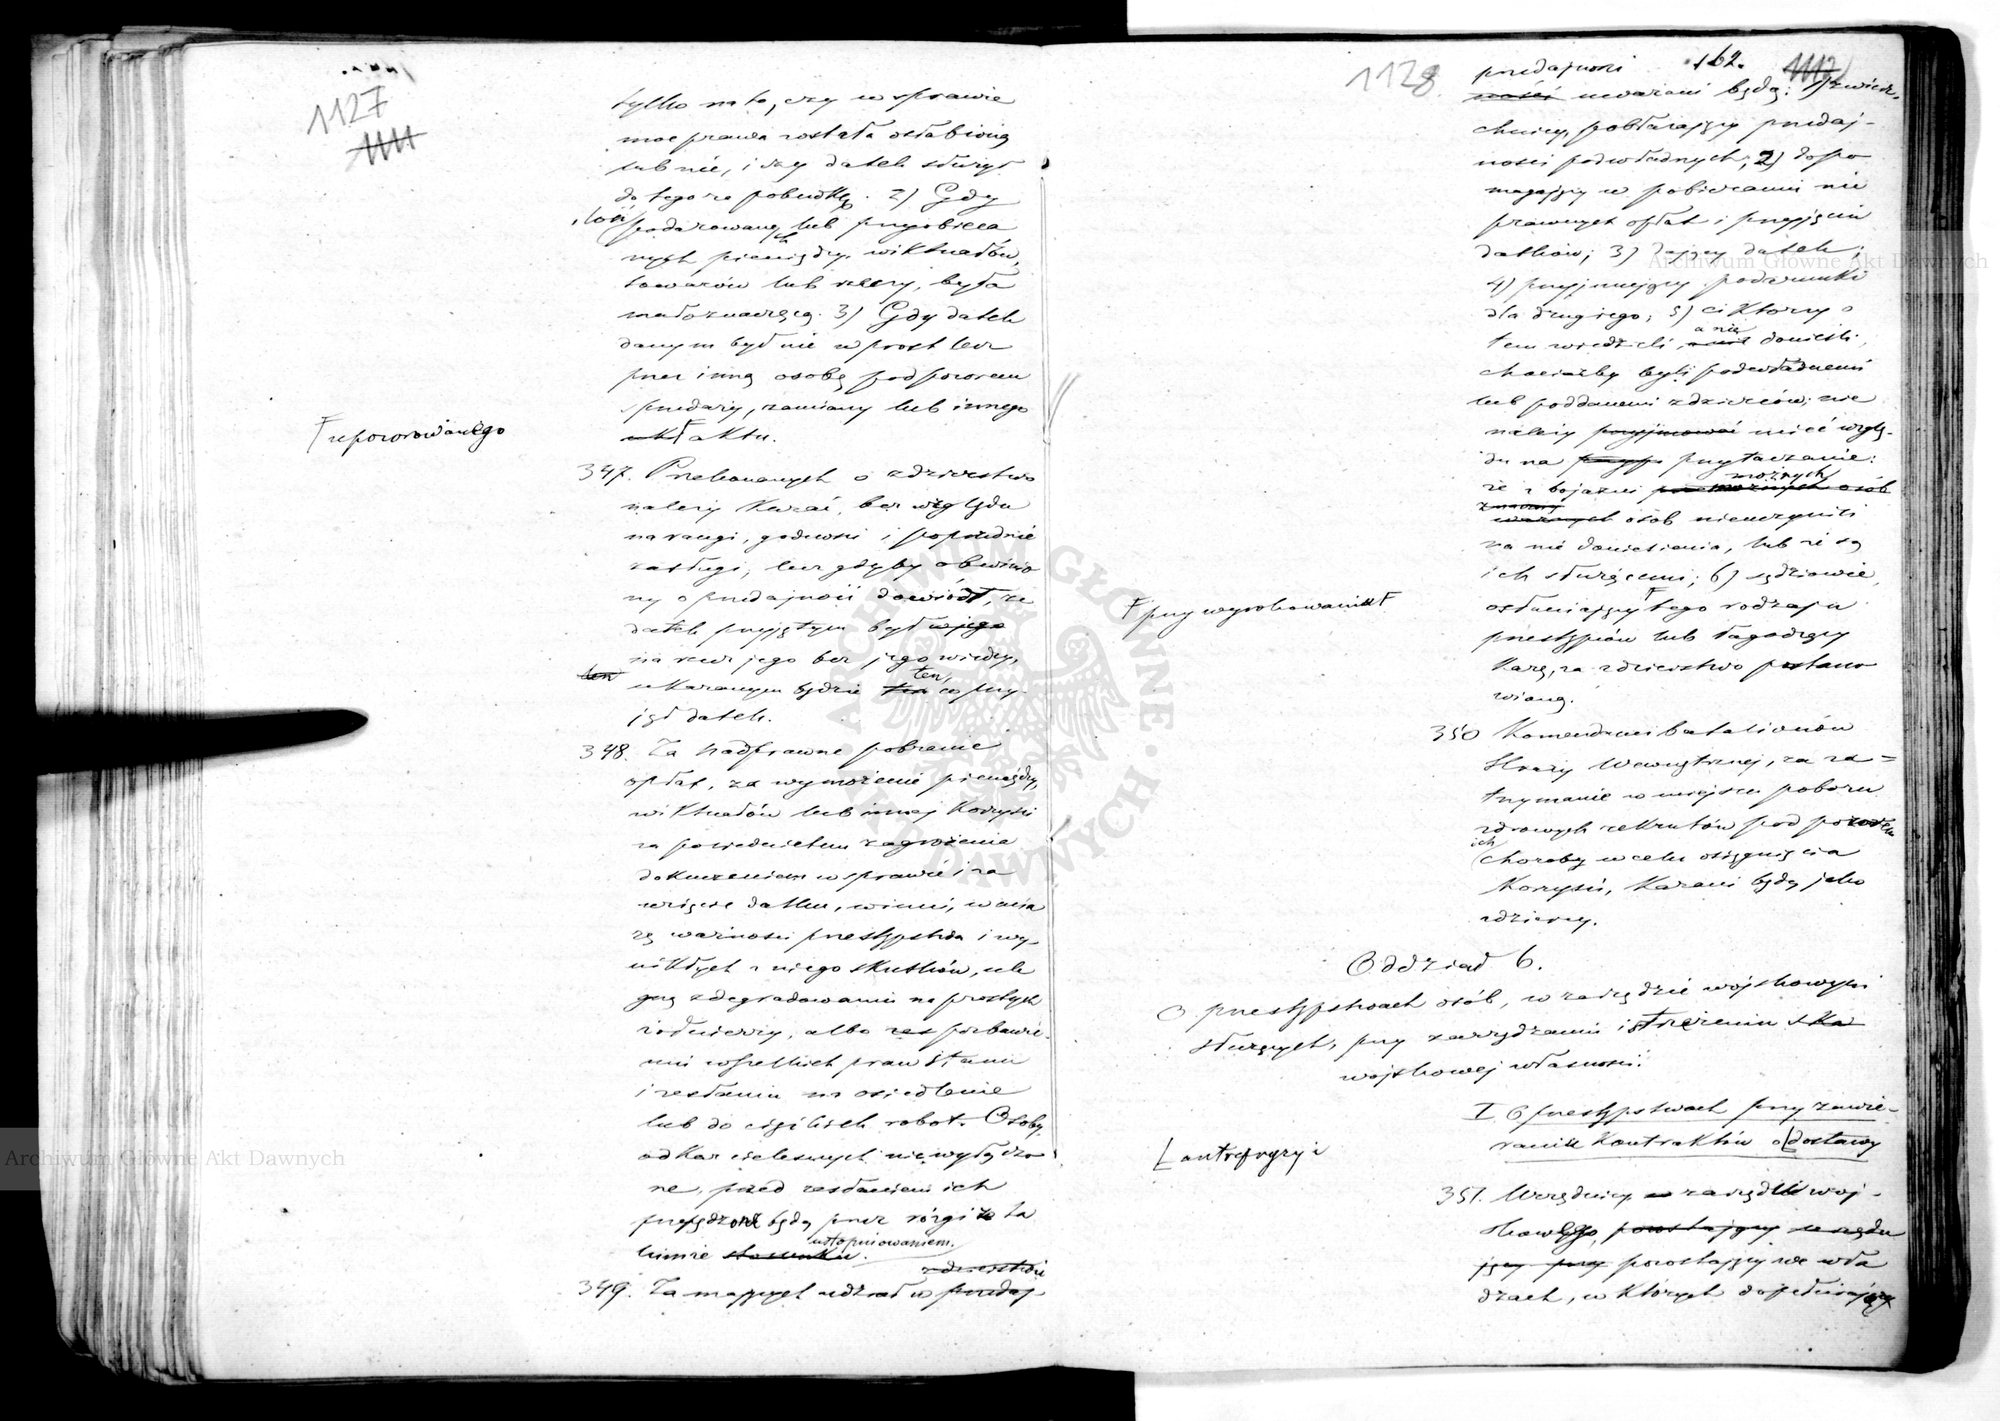 1127
1111
tylko na to, czy w sprawie
moc prawa została osłabioną
lub nie, i czy datek służył
do tego za pobudkę. 2) Gdy
ilość podarowanych lub przyobieca
nych pieniędzy, wiktuałów,
towarów lub rzeczy, była
małoznaczącą. 3) Gdy datek
danym był nie wprost lecz
przez inną osobę pod pozorem
sprzedaży, zamiany lub innego
aktu.
F upozorowanego
347. Przekonanych o zdzierstwo
należy karać, bez względu
na rangi, godności i poprzednie
zasługi, lecz gdyby obwinio
ny o przedajność dowiódł, że
datek przyjętym był
na rzecz jego bez jego wiedzy,
ukaranym będzie ten, co przy-
jął datek.
348. Za nadprawne pobranie
opłat, za wymożenie pieniędzy,
wiktuałów lub innej korzyści
za pośrednictwem zagrożenia
dokuczeniem w sprawie i za
wzięcie datku, winni, w mia
rę ważności przestępstwa i wy-
nikłych z niego skutków, ule
gną zdegradowaniu na prostych
żołnierzy, albo pozbawie-
niu wszelkich praw stanu
i zesłaniu na osiedlenie
lub do ciężkich robot. Osoby,
od kar cielesnych niewyłączo
ne, przed zesłaniem ich
przepędzone będą przez rózgi w ta
kimże ustopniowaniem.
zdzierstwie
349. Za mających udział w przedaj-
1128
162.
1112
przedajności
ności uważani będą: 1) zwierz-
chnicy, pobłażający przedaj-
ności podwładnych; 2) dopo
magający w pobieraniu nie
prawnych opłat i przyjęciu
datków; 3) dający datek;
4) przyjmujący podarunki
dla drugiego; 5) ci którzy o
tem wiedzieli, a nie donieśli,
chociażby byli podwładnemi
lub poddanemi zdzierców; nie
należy przyjmować mieć wzglę-
du na przytaczanie:
że z bojaźni możnych
osób nieuczynili
na nie doniesienia, lub że są
ich służącemi; 6) sędziowie,
osłaniający F tego rodzaju
przestępców lub łagodzący
karę, za zdzierstwo postano
wioną.
F przy wyrokowaniu F
350 Komendanci batalionów
Straży Wewnętrznej, za za=
trzymanie w miejscu poboru
zdrowych rekrutów pod pozorem
ich choroby w celu osiągnięcia
korzyści, karani będą jako
zdziercy.
Oddział 6.
O przestępstwach osób, w zarządzie wojskowym
służących, przy zarządzaniu i strzeżeniu
wojskowej własności.
I O przestępstwach przy zawie-
raniu kontraktów o dostawy
L antrepryzy i
351. Urzędnicy zarządu woj-
skowego, pozostający
pozostający we wła
dzach, w których dopełniają
Archiwum Główne Akt Dawnych
Archiwum Główne Akt Dawnych
ARCHIWUM GŁÓWNE · AKT DAWNYCH ·